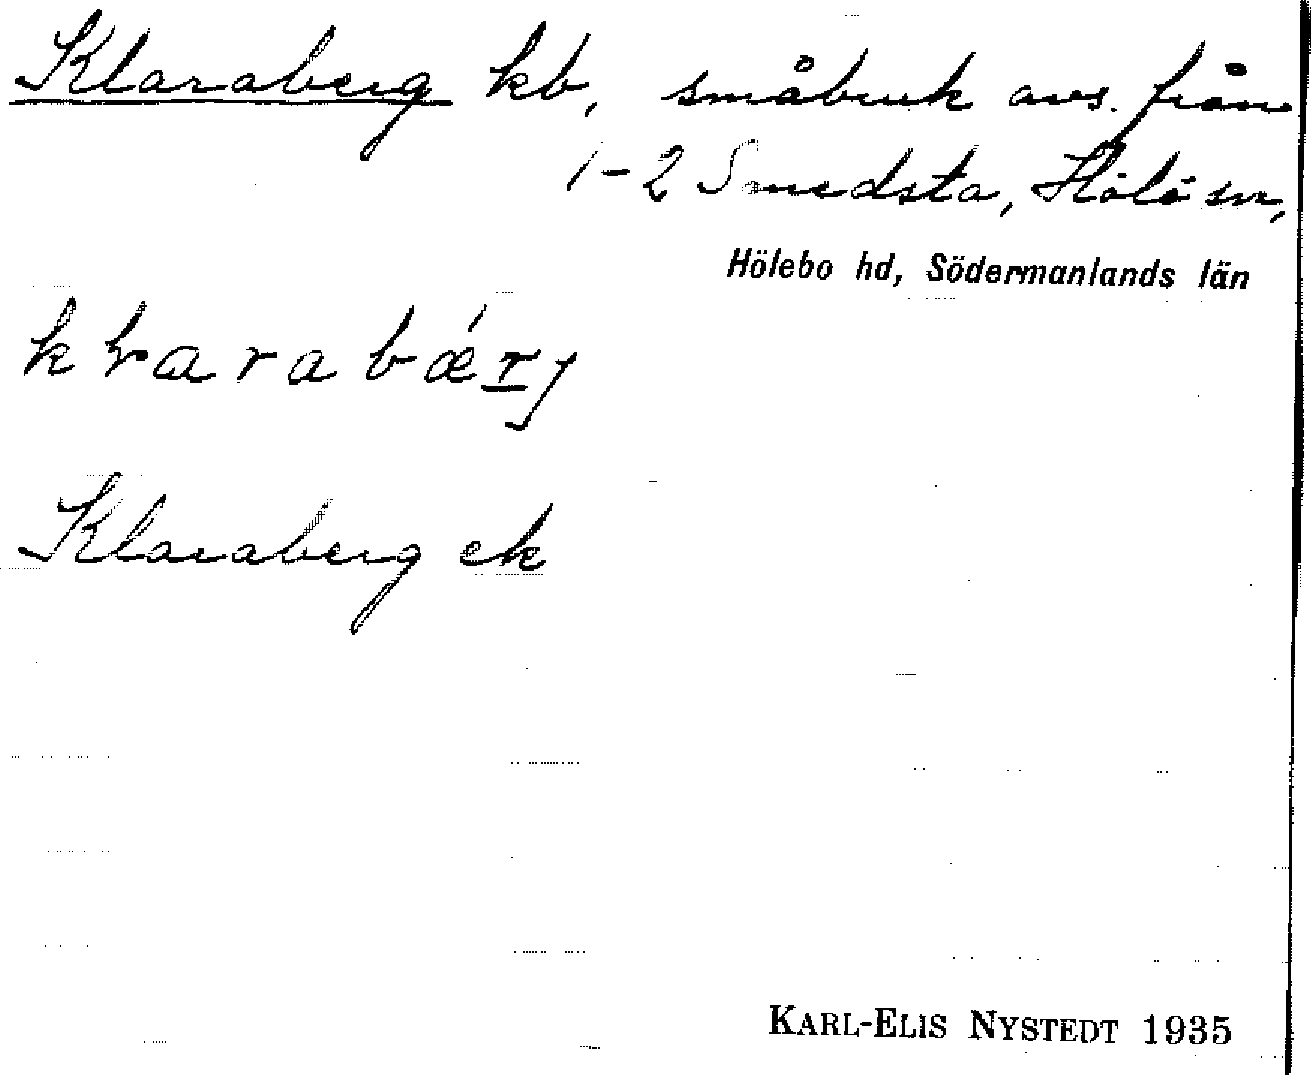 Klaraberg kb, småbruk avs. från
1-2 Smedsta, Hölö sn,
Hölebo hd, Södermanlands län
klarabǽrj
Klaraberg ek
KARL-ELIS NYSTEDT 1935